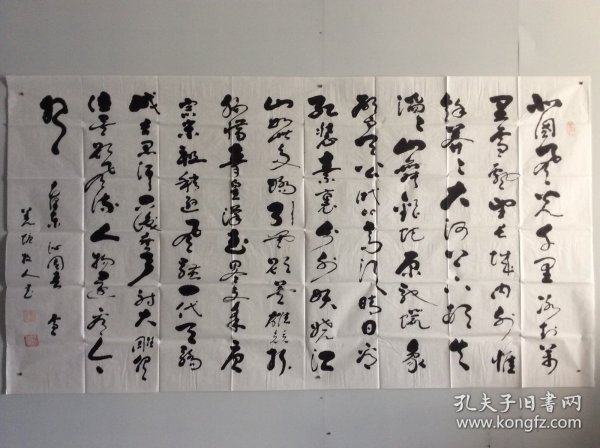 北国风光千里冰封万
里雪飘望长城内外惟
余莽々大河上下顿失
滔々山舞银蛇原驰蜡象
欲与天公试比高须晴日看
红装素裹分外妖娆江
山如此多娇引无数英雄竞折
腰惜秦皇汉武略输文采唐
宗宋祖稍逊风骚一代天骄
成吉思汗只识弯弓射大雕俱
往矣数风流人物还看今
朝
毛泽东 沁园春 雪
孔夫子旧书网
www.kongfz.com